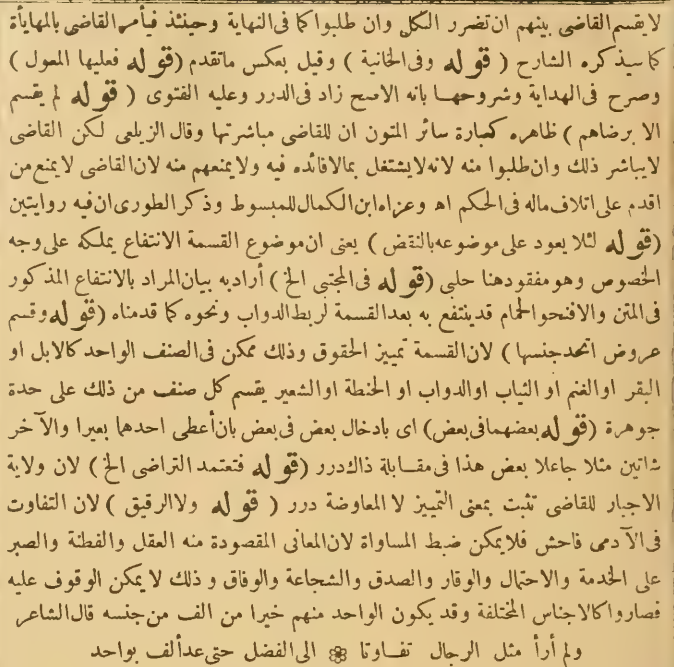 لا يقسم القاضى بينهم ان تضرر الكل وان طلبوا كما فى النهاية وحينئذ فيأمر القاضى بالمهايأة
كما سيذكره الشارح ( قوله وفى الخانية ) وقيل بعكس ما تقدم ( قوله فعليها المعول )
وصرح فى الهداية وشروحها بانه الاصح زاد فى الدرر وعليه الفتوى ( قوله لم يقسم
الا برضاهم ) ظاهره كعبارة سائر المتون ان للقاضى مباشرتها وقال الزيلعى لكن القاضى
لايباشر ذلك وان طلبوا منه لانه لايشتغل بما لافائده فيه ولايمنعهم منه لان القاضى لايمنع من
اقدم على اتلاف ماله فى الحكم اه وعزاه ابن الكمال للمبسوط وذكر الطورى ان فيه روايتين
( قوله لئلا يعود على موضوعه بالنقض ) يعنى ان موضوع القسمة الانتفاع بملكه على وجه
الخصوص وهو مفقود هنا حلبى ( قوله فى المجتبى الخ ) أراد به بيان المراد بالانتفاع المذكور
فى المتن والافنحو الحمام قد ينتفع به بعد القسمة لربط الدواب ونحوه كما قدمناه ( قوله وقسم
عروض اتحد جنسها ) لان القسمة تمييز الحقوق وذلك ممكن فى الصنف الواحد كالابل او
البقر او الغنم او الثياب او الدواب او الحنطة او الشعير يقسم كل صنف من ذلك على حدة
جوهرة ( قوله بعضهما فى بعض ) اى بادخال بعض فى بعض بان أعطى احدهما بعيرا والآخر
شاتين مثلا جاعلا بعض هذا فى مقابلة ذاك درر ( قوله فتعتمد التراضى الخ ) لان ولاية
الاجبار للقاضى تثبت بمعنى التمييز لا المعاوضة درر ( قوله ولا الرقيق ) لان التفاوت
فى الآدمى فاحش فلا يمكن ضبط المساواة لان المعانى المقصودة منه العقل والفطنة والصبر
على الخدمة والاحتمال والوقار والصدق والشجاعة والوفاق وذلك لايمكن الوقوف عليه
فصاروا كالاجناس المختلفة وقد يكون الواحد منهم خيرا من الف من جنسه قال الشاعر
ولم أرأ مثل الرجال تفاوتا ❁ الى الفضل حتى عد ألف بواحد